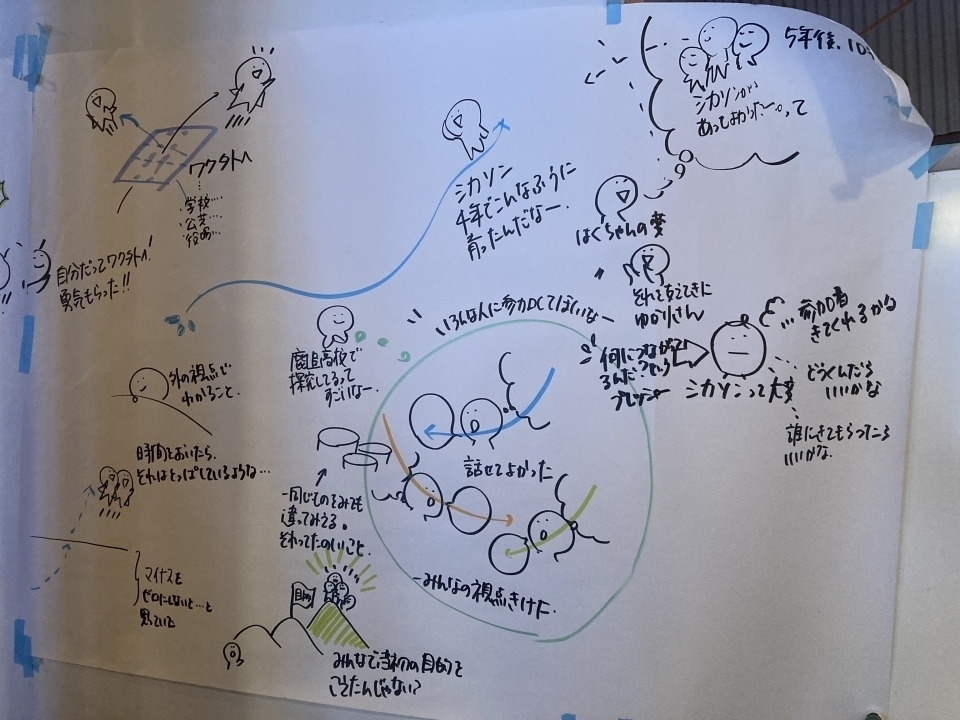 5年後.10
シカソンが
あってよかったー。って
ワクタトヘ
学校…
公共…
役場…
シカソン
4年でこんなふうに
育ったんだなー.
はぐちゃんの夢
自分だってワクタトヘ!
勇気もらった!!
それをあえてきに
ゆかりさん
いろんな人に参加してほしいなー
参加者
きてくれるかな
何につながって
るんだろうという
プレッシャー
シカソンって大変
どうくんだら
いいかな
誰にきてもらったら
いいかな.
鹿追高校で
探究してるって
すごいなー.
外の視点で
わかること.
時間をおいたら.
それはとっぱしているような…
話せてよかった
一同じものをみても
違ってみえる。
それってたのしいこと.
-みんなの視点きけた.
マイナスを
ゼロにしないと…と
思っていた
目的
みんなで当初の目的を
こえたんじゃない?